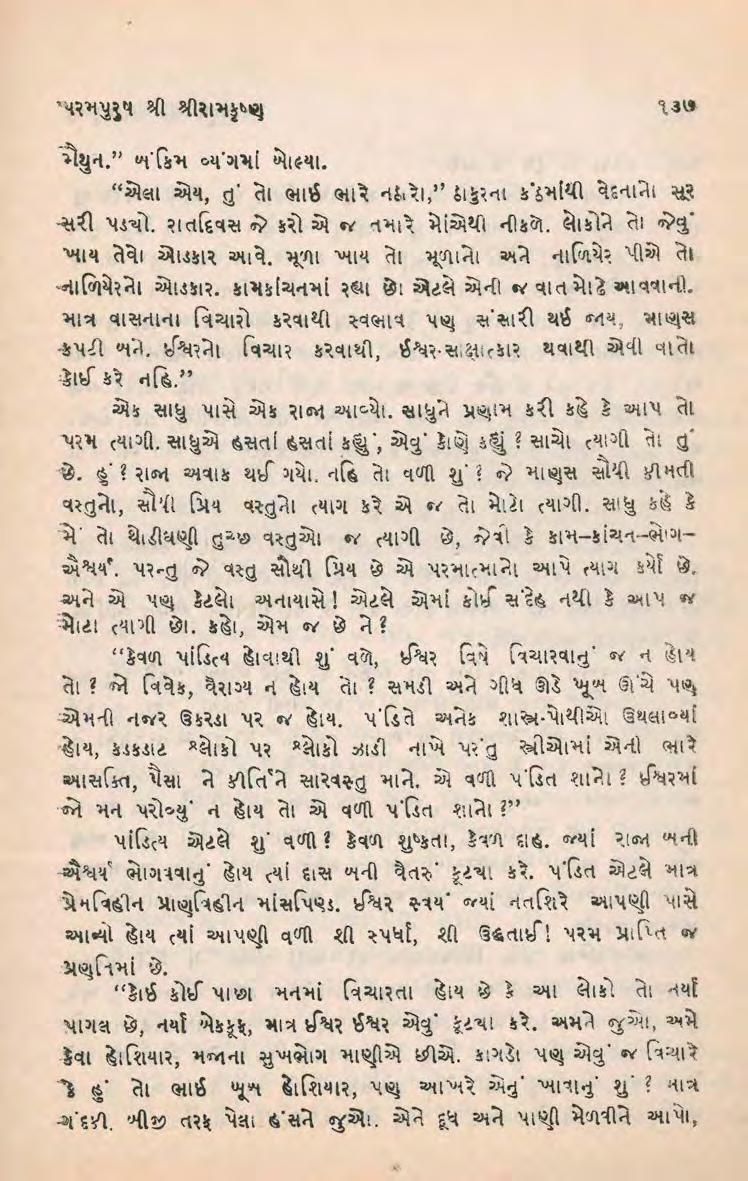 પરમપુરુષ શ્રી શ્રીરામકૃષ્ણ ૧૩૭
મૈથુન.” બંકિમ વ્યંગમાં બોલ્યા.
“એલા એય, તું તો ભાઈ ભારે નઠારો,” ઠાકુરના કંઠમાંથી વેદનાનો સૂર
સરી પડયો. રાતદિવસ જે કરો એ જ તમારે મોંએથી નીકળે. લોકોને તો જેવું
ખાય તેવો ઓડકાર આવે. મૂળા ખાય તો મૂળાનો અને નાળિયેર પીએ તો
નાળિયેરનો ઓડકાર. કામકાંચનમાં રહ્યા છો એટલે એની જ વાત મોઢે આવવાની.
માત્ર વાસનાના વિચારો કરવાથી સ્વભાવ પણ સંસારી થઈ જાય, માણસ
કપટી બને. ઈશ્વરનો વિચાર કરવાથી, ઈશ્વર-સાક્ષાત્કાર થવાથી એવી વાતો
કોઈ કરે નહિ.”
એક સાધુ પાસે એક રાજા આવ્યો. સાધુને પ્રણામ કરી કહે કે આપ તો
પરમ ત્યાગી. સાધુએ હસતાં હસતાં કહ્યું, એવું કોણે કહ્યું ? સાચો ત્યાગી તો તું
છે. હું ? રાજા અવાક થઈ ગયો. નહિ તો વળી શું ? જે માણસ સૌથી કીમતી
વસ્તુનો, સૌથી પ્રિય વસ્તુનો ત્યાગ કરે એ જ તો મોટો ત્યાગી. સાધુ કહે કે
મેં તો થોડીઘણી તુચ્છ વસ્તુઓ જ ત્યાગી છે, જેવી કે કામ–કાંચન–ભોગ–
ઐશ્વર્ય. પરન્તુ જે વસ્તુ સૌથી પ્રિય છે એ પરમાત્માનો આપે ત્યાગ કર્યો છે.
અને એ પણ કેટલો અનાયાસે ! એટલે એમાં કોઈ સંદેહ નથી કે આપ જ
મોટા ત્યાગી છો. કહો, એમ જ છે ને ?
“કેવળ પાંડિત્ય હોવાથી શું વળે, ઈશ્વર વિષે વિચારવાનું જ ન હોય
તો ? જો વિવેક, વૈરાગ્ય ન હોય તો ? સમડી અને ગીધ ઊડે ખૂબ ઊંચે પણ
એમની નજર ઉકરડા પર જ હોય. પંડિતે અનેક શાસ્ત્ર-પોથીઓ ઉથલાવ્યાં
હોય, કડકડાટ શ્લોકો પર શ્લોકો ઝાડી નાખે પરંતુ સ્ત્રીઓમાં એની ભારે
આસક્તિ, પૈસા ને કીર્તિને સારવસ્તુ માને. એ વળી પંડિત શાનો ? ઈશ્વરમાં
જો મન પરોવ્યું ન હોય તો એ વળી પંડિત શાનો ?”
પાંડિત્ય એટલે શું વળી ? કેવળ શુષ્કતા, કેવળ દાહ. જ્યાં રાજા બની
ઐશ્વર્ય ભોગવવાનું હોય ત્યાં દાસ બની વૈતરું કૂટયા કરે. પંડિત એટલે માત્ર
પ્રેમવિહીન પ્રાણવિહીન માંસપિણ્ડ. ઈશ્વર સ્વયં જ્યાં નતશિરે આપણી પાસે
આવ્યો હોય ત્યાં આપણી વળી શી સ્પર્ધા, શી ઉદ્ધતાઈ ! પરમ પ્રાપ્તિ જ
પ્રણતિમાં છે.
“કોઈ કોઈ પાછા મનમાં વિચારતા હોય છે કે આ લોકો તો નર્યા
પાગલ છે, નર્યા બેકકૂફ, માત્ર ઈશ્વર ઈશ્વર એવું કૂટયા કરે. અમને જુઓ, અમે
કેવા હોશિયાર, મજાના સુખભોગ માણીએ છીએ. કાગડો પણ એવું જ વિચારે
કે હું તો ભાઈ ખૂબ હોશિયાર, પણ આખરે એનું ખાવાનું શું ? માત્ર
ગંદકી. બીજી તરફ પેલા હંસને જુઓ. એને દૂધ અને પાણી મેળવીને આપો,